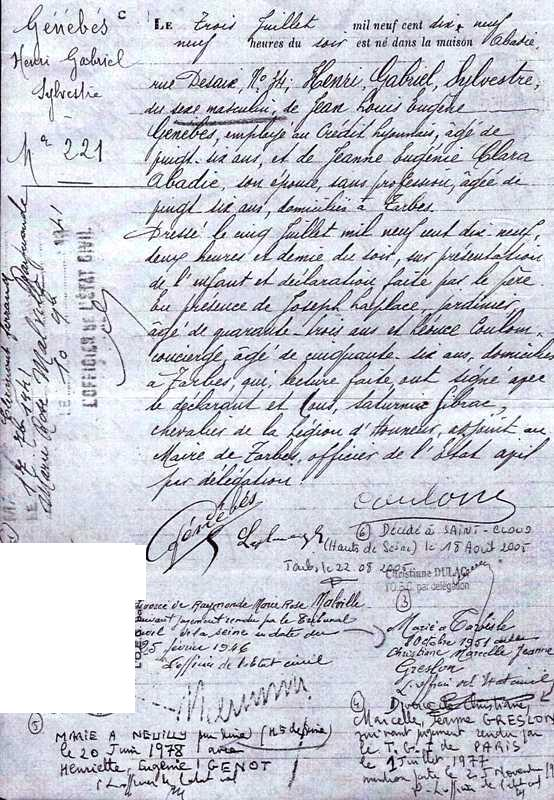 Génébés
Henri Gabriel
Sylvestre
N° 221
c
LE Trois Juillet mil neuf cent dix neuf
neuf heures du soir est né dans la maison Abadie,
rue Desaix, N° 34, Henri, Gabriel, Sylvestre,
du sexe masculin, de Jean Louis Eugène
Génébés, employé au Crédit Lyonnais, âgé de
vingt-six ans, et de Jeanne Eugénie Clara
Abadie, son épouse, sans profession, âgée de
vingt six ans, domiciliés à Tarbes.
Dressé le cinq Juillet mil neuf cent dix neuf,
deux heures et demie du soir, sur présentation
de l'enfant et déclaration faite par le père
En présence de Joseph Laplace, jardinier,
âgé de quarante-trois ans et Léonce Coulom,
concierge, âgé de cinquante-six ans, domiciliés
à Tarbes, qui, lecture faite, ont signé avec
le déclarant et Nous, Saturnin Fibrac,
chevalier de la Légion d'Honneur, adjoint au
Maire de Tarbes, officier de l'État civil
par délégation
Génébés
Coulom
Clermont Ferrand
LE 17 7b 1941
Marie Rose Malville
LE 10 9b 1941
L'OFFICIER DE L'ÉTAT CIVIL
(6) Décédé à SAINT-CLOUD
(Hauts de Seine) le 18 Août 2005
Tarbes le 22.08.2005
Christiane DULAC
P/O.E.C. par délégation
(3)
Divorcé de Raymonde Marie Rose Malville
suivant jugement rendu par le Tribunal
civil de la Seine en date du
25 février 1946
L'officier de l'état civil
Marié à
Octobre 1951
Christiane Marcelle Jeanne
Greslon
L'officier de l'État civil
(4) Divorcé de Christiane,
Marcelle, Jeanne GRESLON
suivant jugement rendu par
le T.G.I de PARIS
le 1 Juillet 1977
mention faite le 25 Novembre
P. L'officier de l'état civil
(5) MARIÉ A NEUILLY sur Seine (Hts de Seine)
le 20 Juin 1978 avec
Henriette, Eugénie GENOT
L'officier de l'état civil